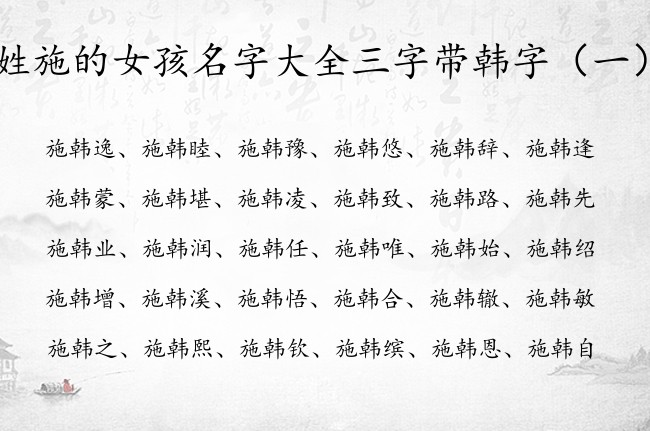 姓施的女孩名字大全三字带韩字（一）
施韩逸、施韩睦、施韩豫、施韩悠、施韩辞、施韩逢
施韩蒙、施韩堪、施韩凌、施韩致、施韩路、施韩先
施韩业、施韩润、施韩任、施韩唯、施韩始、施韩绍
施韩增、施韩溪、施韩悟、施韩合、施韩辙、施韩敏
施韩之、施韩熙、施韩钦、施韩缤、施韩恩、施韩自